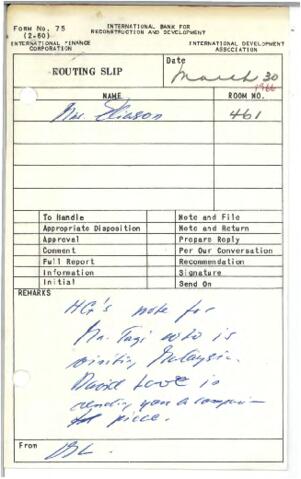 FORM No. 75
(2-60)
INTERNATIONAL BANK FOR
RECONSTRUCTION AND DEVELOPMENT
INTERNATIONAL FINANCE
CORPORATION
INTERNATIONAL DEVELOPMENT
ASSOCIATION
ROUTING SLIP
Date
March 30
1966
NAME
ROOM NO.
Mr. Eliason
461
To Handle
Note and File
Appropriate Disposition
Note and Return
Approval
Prepare Reply
Comment
Per Our Conversation
Full Report
Recommendation
Information
Signature
Initial
Send On
REMARKS
HG's note for
Mr. Tagi who is
visiting Malaysia.
David Love is
sending you a
piece.
From